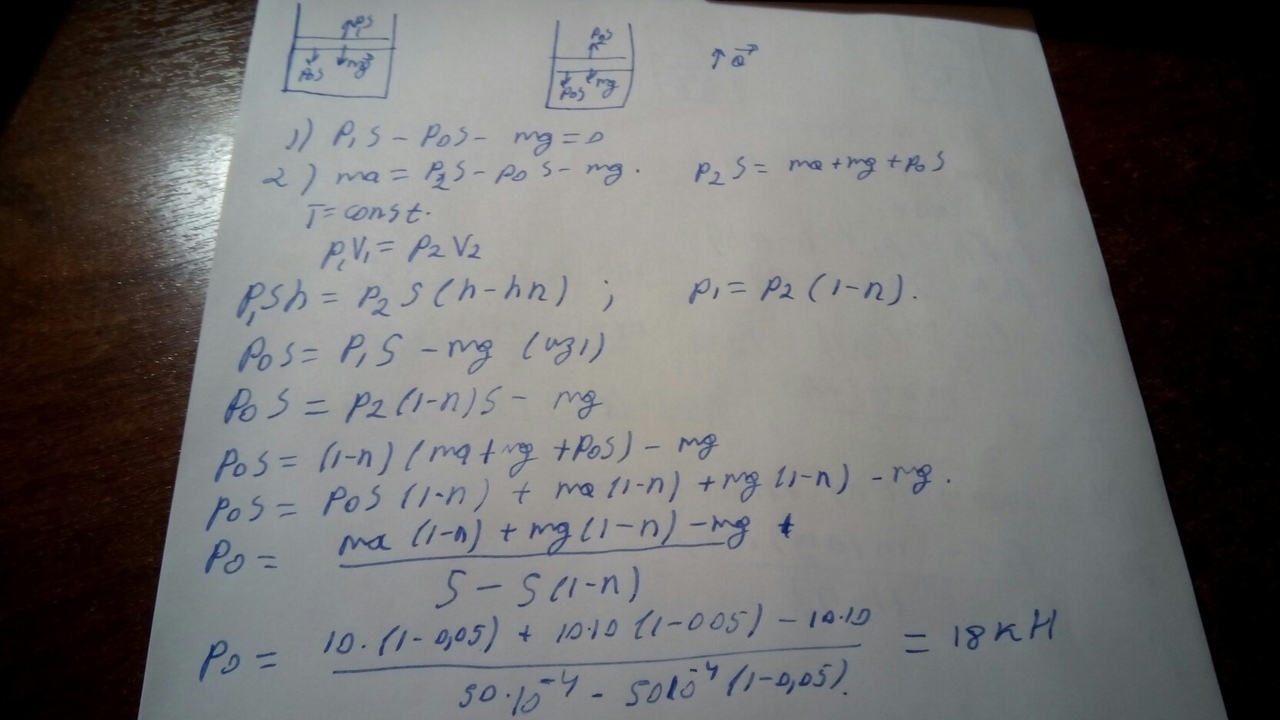 ↑P₁S P₂S ↑a⃗
P₀S mg⃗ P₀S mg
1) P₁S - P₀S - mg = 0
2) ma = P₂S - p₀S - mg. P₂S = ma + mg + P₀S
T = const.
p₁V₁ = P₂V₂
P₁Sh = P₂S(h - hn) ; p₁ = P₂(1-n).
P₀S = P₁S - mg (из1)
P₀S = P₂(1-n)S - mg
P₀S = (1-n)(ma + mg + P₀S) - mg
P₀S = P₀S(1-n) + ma(1-n) + mg(1-n) - mg.
P₀ = ma(1-n) + mg(1-n) - mg
S - S(1-n)
P₀ = 10·(1-0,05) + 10·10(1-005) - 10·10 = 18кН
50·10⁻⁴ - 5010⁻⁴(1-0,05).